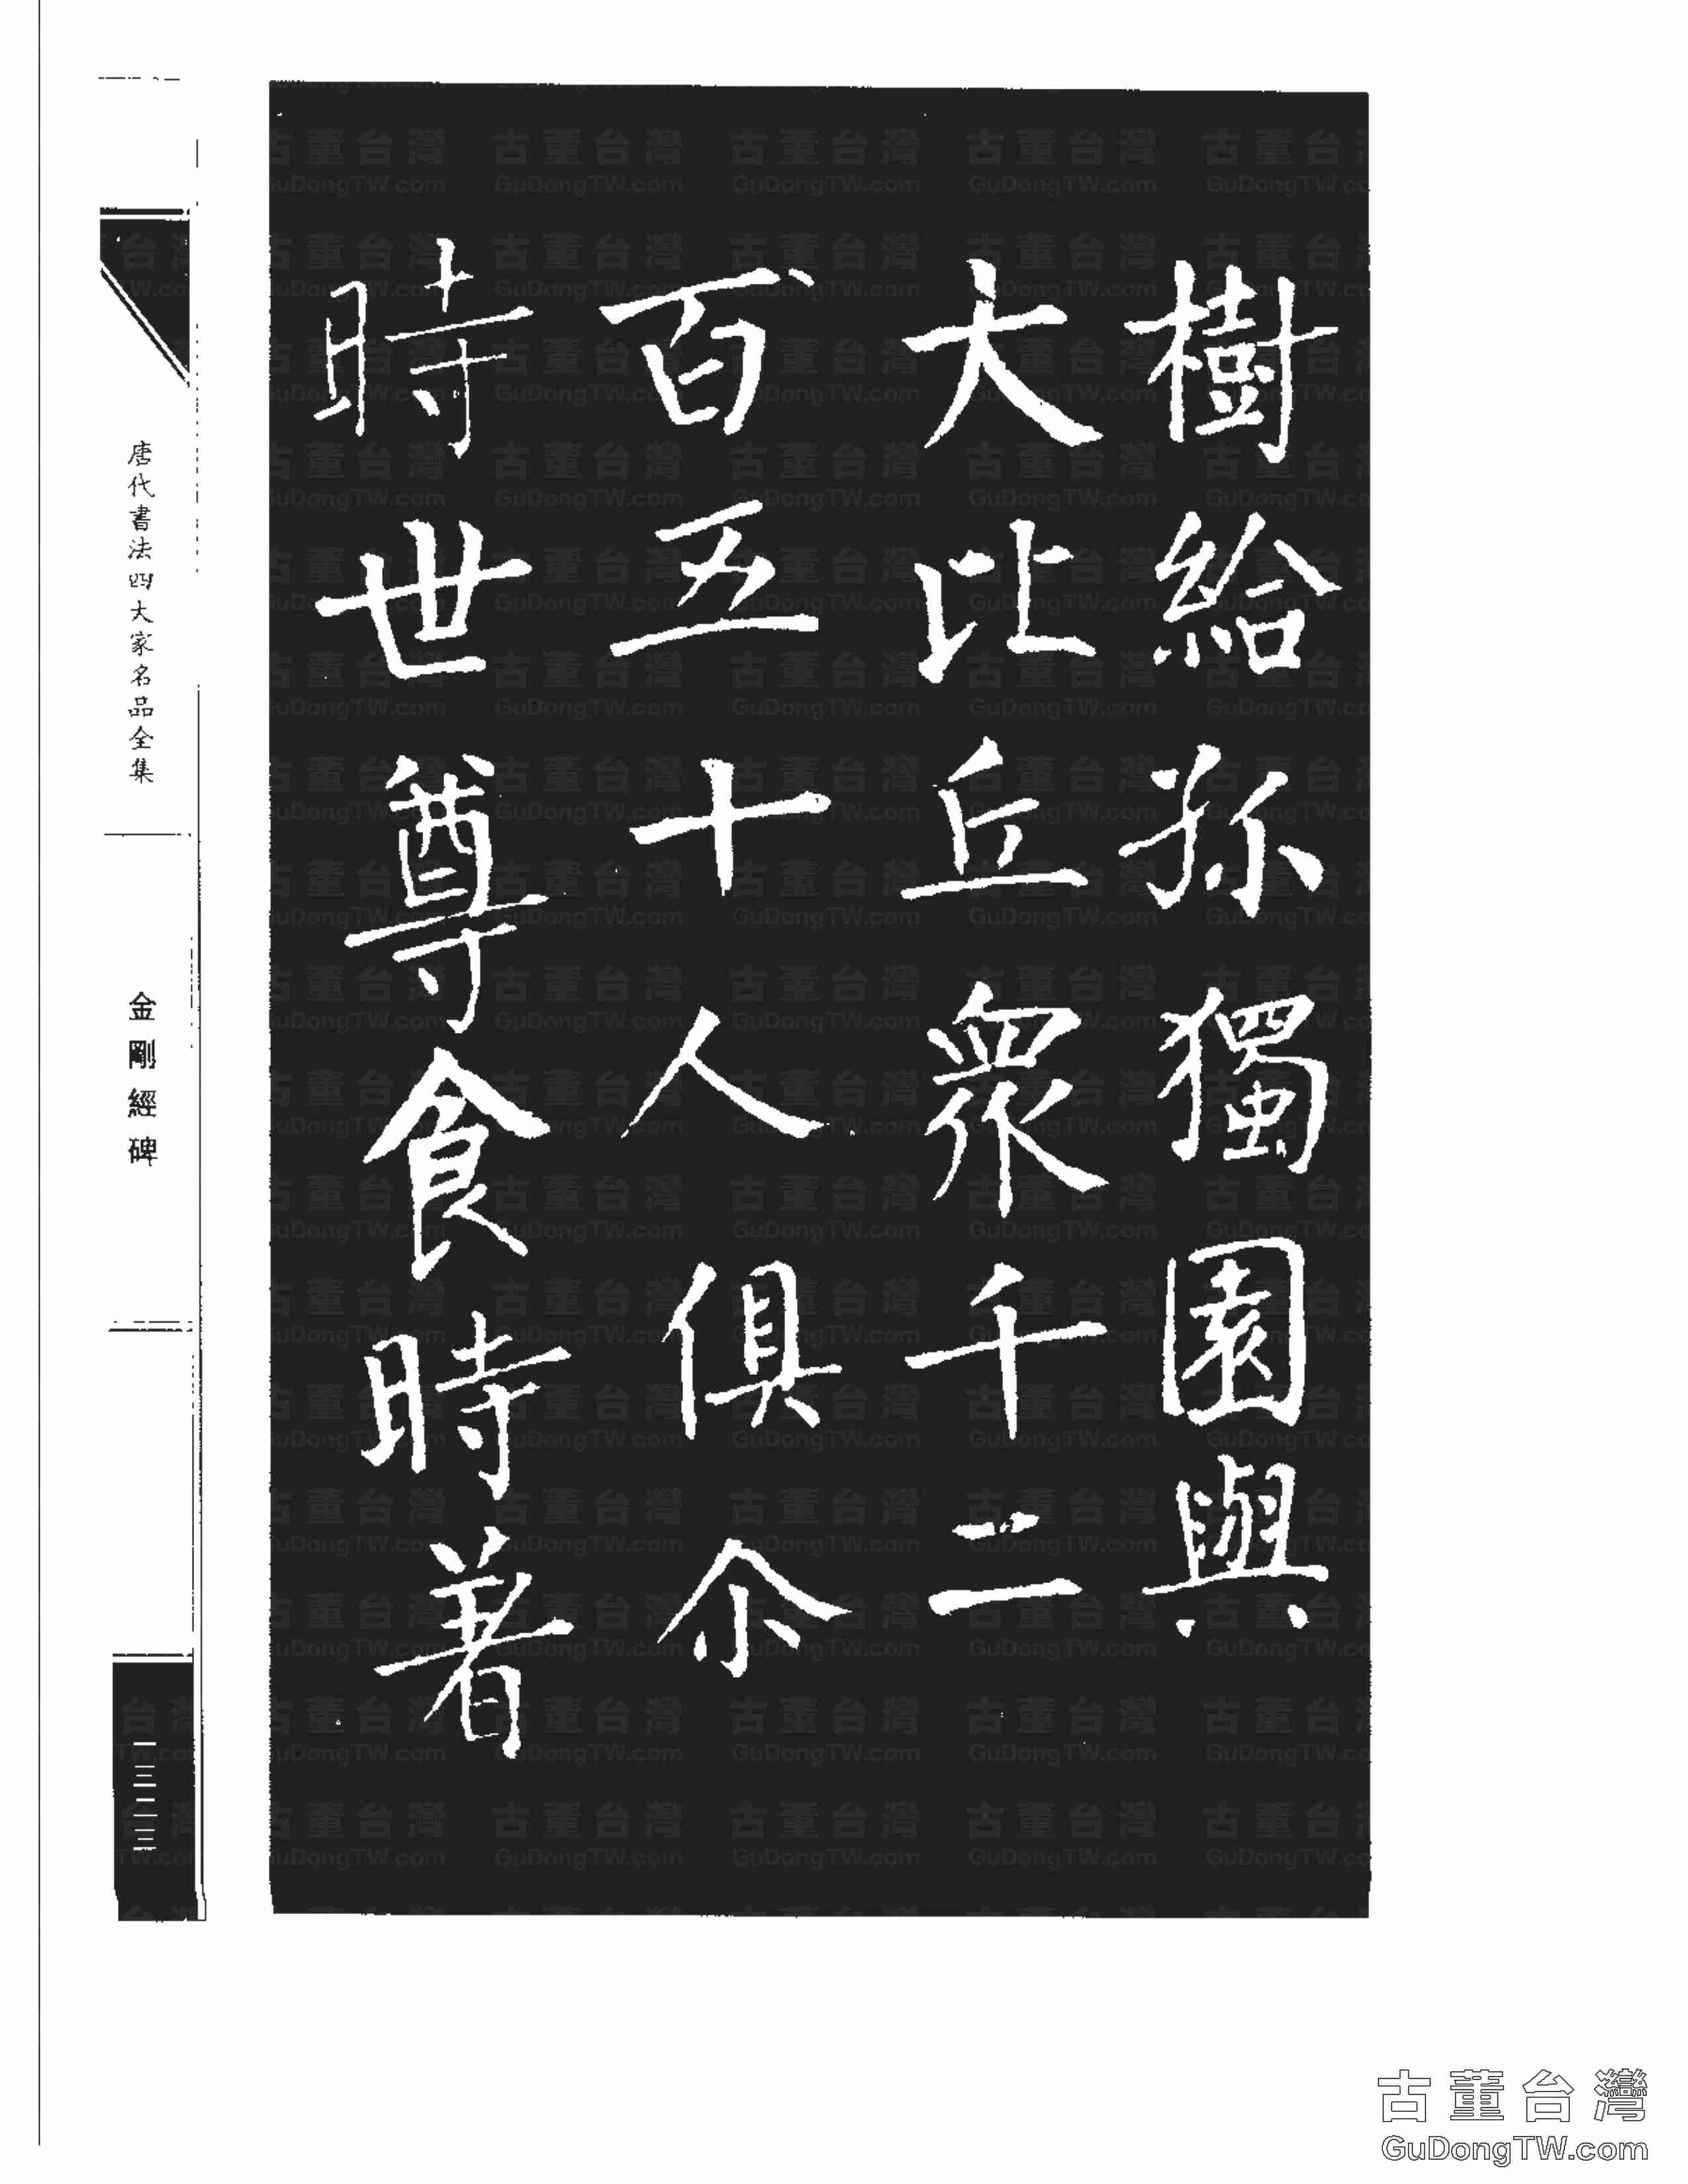 樹給孤獨園與
大比丘衆千二
百五十人俱尒
時世尊食時著
唐代書法四大家名品全集
金剛經碑
一三二三
古董台灣
GuDongTW.com